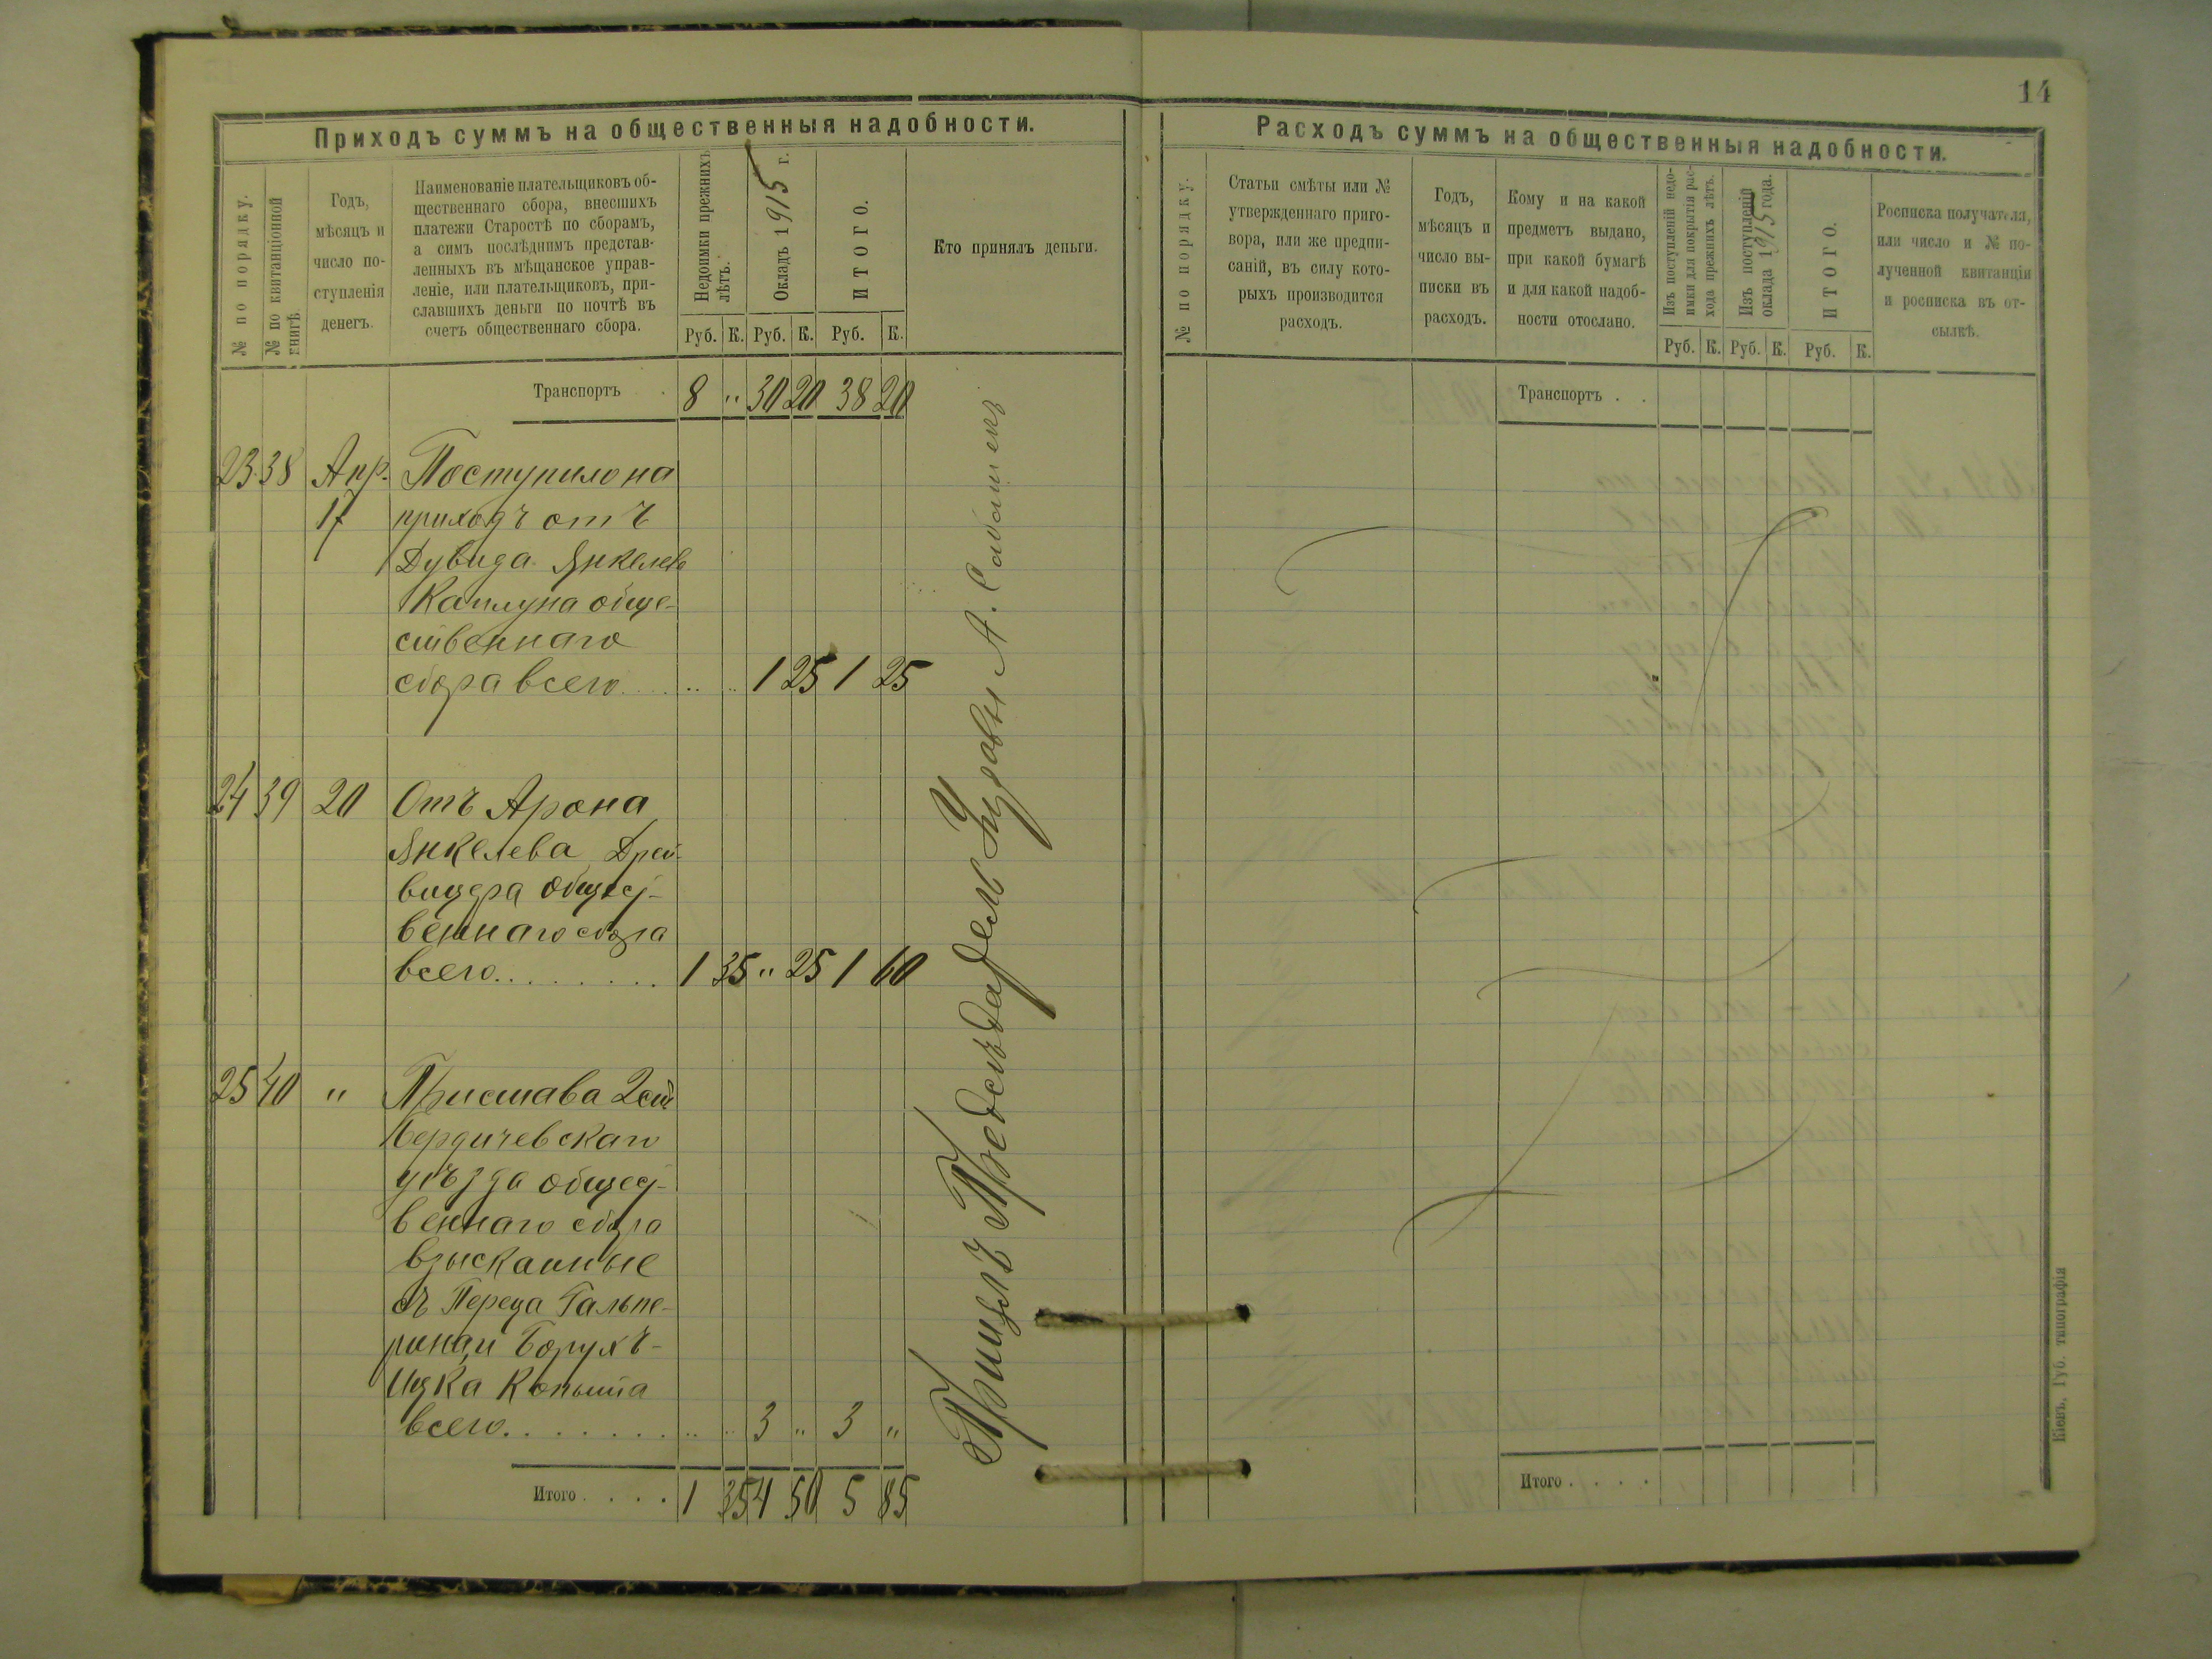 14
Приходъ суммъ на общественныя надобности.
№ по порядку.
№ по квитанціонной
книгѣ.
Годъ,
мѣсяцъ и
число по-
ступленія
денегъ.
Наименованіе плательщиковъ об-
щественнаго сбора, внесшихъ
платежи Старостѣ по сборамъ,
а симъ послѣднимъ представ-
ленныхъ въ мѣщанское управ-
леніе, или плательщиковъ, при-
славшихъ деньги по почтѣ въ
счетъ общественнаго сбора.
Недоимки прежнихъ
лѣтъ.
Окладъ 1915 г.
ИТОГО.
Кто принялъ деньги.
Руб. К. Руб. К. Руб. К.
Транспортъ . 8 " 30 20 38 20
23 38 Апр. Поступило на
17 приходъ отъ
Дувида Янкелева
Каплуна обще-
ственнаго
сбора всего . . . . 1 25 1 25
24 39 20 Отъ Арона
Янкелева Дрей-
вицера общест-
веннаго сбора
всего . . . . . . . . 1 35 " 25 1 60
25 40 " Пристава 2 ст
Бердичевскаго
уѣзда общест-
веннаго сбора
взысканные
съ Переца Гальпе-
рина и Борухъ-
Ицка Копыта
всего . . . . . . . . 3 " 3 "
Итого . . . . 1 35 4 50 5 85
Принялъ Предсѣдатель Управы А.
Расходъ суммъ на общественныя надобности.
№ по порядку.
Статьи смѣты или №
утвержденнаго приго-
вора, или же предпи-
саній, въ силу кото-
рыхъ производится
расходъ.
Годъ,
мѣсяцъ и
число вы-
писки въ
расходъ.
Кому и на какой
предметъ выдано,
при какой бумагѣ
и для какой надоб-
ности отослано.
Изъ поступленій недо-
имки для покрытія рас-
хода прежнихъ лѣтъ.
Изъ поступленій
оклада 1915 года.
ИТОГО.
Росписка получателя,
или число и № по-
лученной квитанціи
и росписка въ от-
сылкѣ.
Руб. К. Руб. К. Руб. К.
Транспортъ . .
Итого . . . .
Кіевъ, Губ. типографія